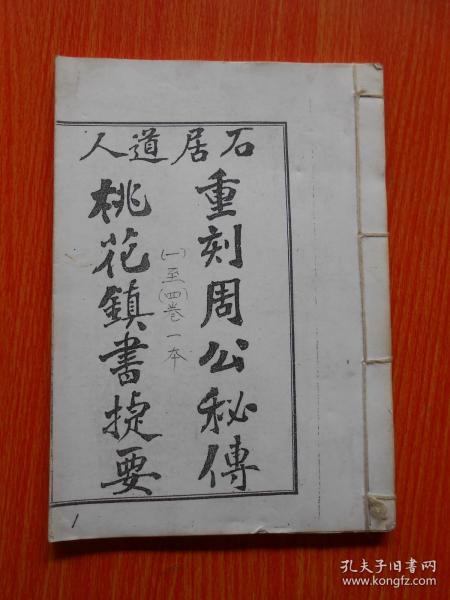 石居道人
重刻周公秘傳
桃花鎮書捷要
(一)至(四)卷一本
1
孔夫子旧书网
www.kongfz.com